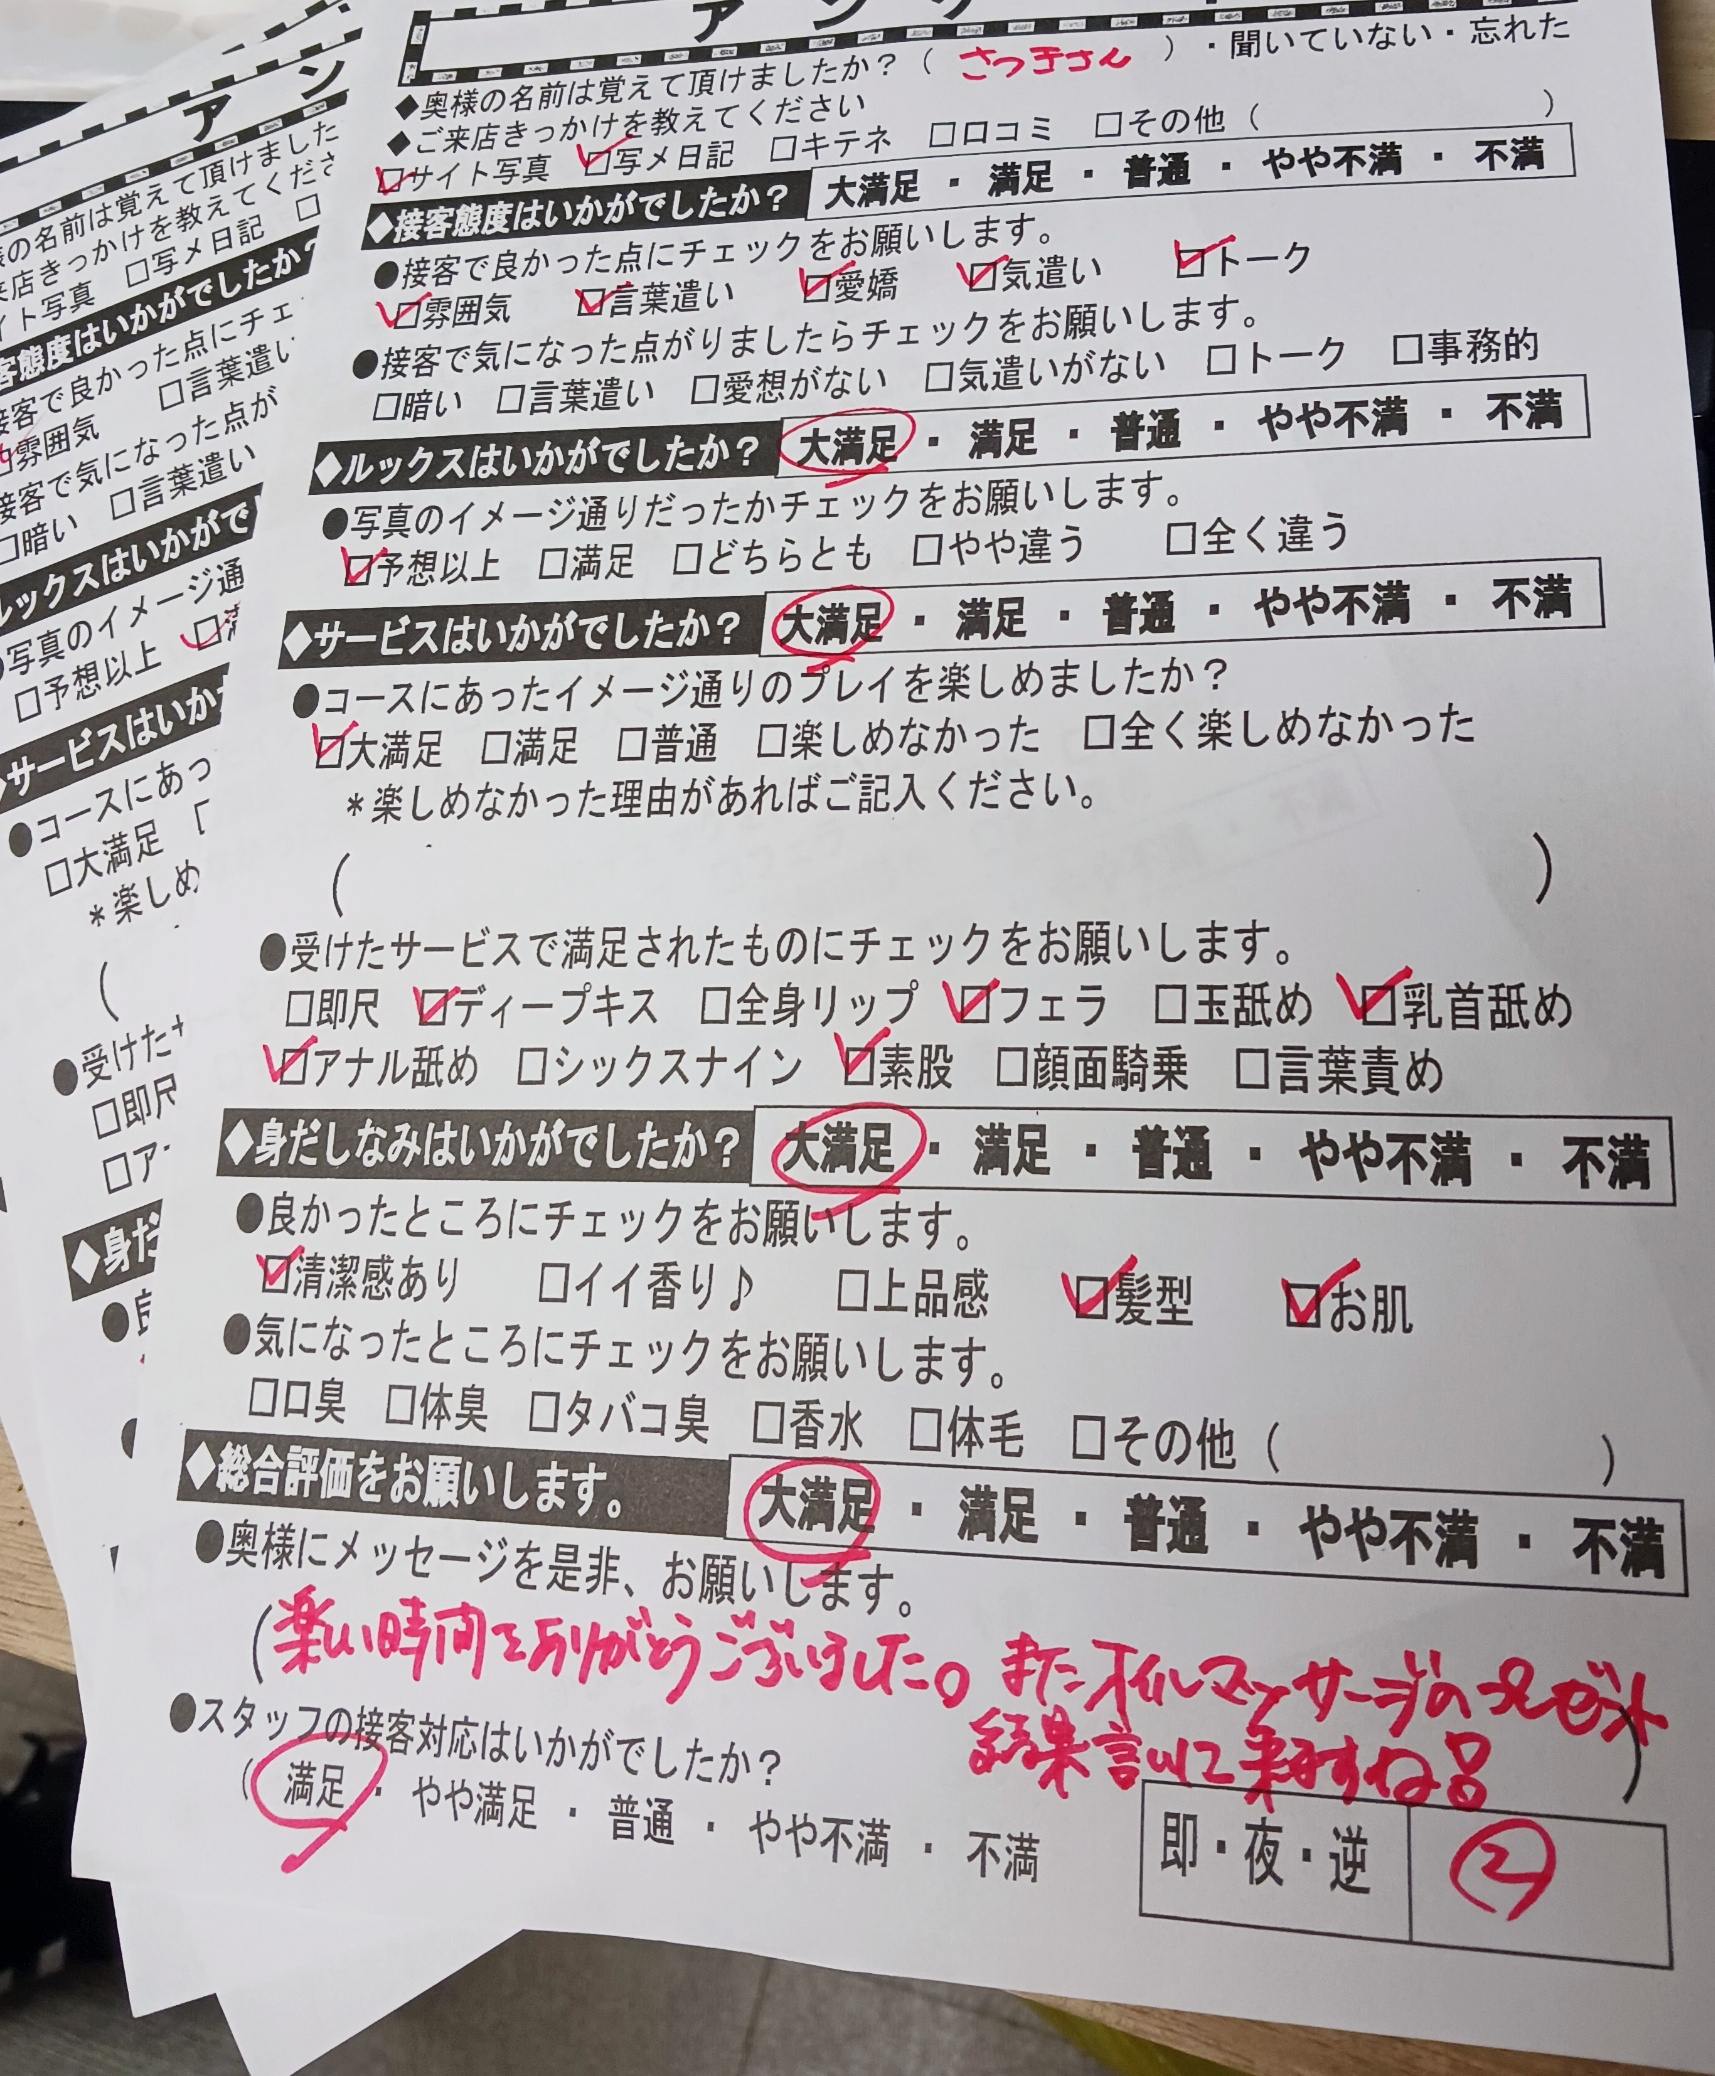 アンケ
◆奥様の名前は覚えて頂けましたか？（ さつ子さん ）・聞いていない・忘れた
◆ご来店きっかけを教えてください
☑サイト写真 ☑写メ日記 □キテネ □口コミ □その他（ ）
◆接客態度はいかがでしたか？ 大満足 ・ 満足 ・ 普通 ・ やや不満 ・ 不満
●接客で良かった点にチェックをお願いします。
☑雰囲気 ☑言葉遣い ☑愛嬌 ☑気遣い ☑トーク
●接客で気になった点がりましたらチェックをお願いします。
□暗い □言葉遣い □愛想がない □気遣いがない □トーク □事務的
◆ルックスはいかがでしたか？ 大満足 ・ 満足 ・ 普通 ・ やや不満 ・ 不満
●写真のイメージ通りだったかチェックをお願いします。
☑予想以上 □満足 □どちらとも □やや違う □全く違う
◆サービスはいかがでしたか？ 大満足 ・ 満足 ・ 普通 ・ やや不満 ・ 不満
●コースにあったイメージ通りのプレイを楽しめましたか？
☑大満足 □満足 □普通 □楽しめなかった □全く楽しめなかった
＊楽しめなかった理由があればご記入ください。
（ ）
●受けたサービスで満足されたものにチェックをお願いします。
□即尺 ☑ディープキス □全身リップ ☑フェラ □玉舐め ☑乳首舐め
☑アナル舐め □シックスナイン ☑素股 □顔面騎乗 □言葉責め
◆身だしなみはいかがでしたか？ 大満足 ・ 満足 ・ 普通 ・ やや不満 ・ 不満
●良かったところにチェックをお願いします。
☑清潔感あり □イイ香り♪ □上品感 ☑髪型 ☑お肌
●気になったところにチェックをお願いします。
□口臭 □体臭 □タバコ臭 □香水 □体毛 □その他（ ）
◆総合評価をお願いします。 大満足 ・ 満足 ・ 普通 ・ やや不満 ・ 不満
●奥様にメッセージを是非、お願いします。
（楽しい時間をありがとうございました。またオイルマッサージのプレゼント
結果言いに来ますね）
●スタッフの接客対応はいかがでしたか？
（ 満足 ・ やや満足 ・ 普通 ・ やや不満 ・ 不満
即・夜・逆 ②
アン
様の名前は覚えて頂けました
来店きっかけを教えてくださ
イト写真 □写メ日記 □
客態度はいかがでしたか？
接客で良かった点にチェ
□雰囲気 □言葉遣い
接客で気になった点が
□暗い □言葉遣い
ルックスはいかがで
●写真のイメージ通
□予想以上 ☑満
◆サービスはいか
●コースにあっ
□大満足
＊楽しめ
（
●受けた
□即尺
□ア
◆身だ